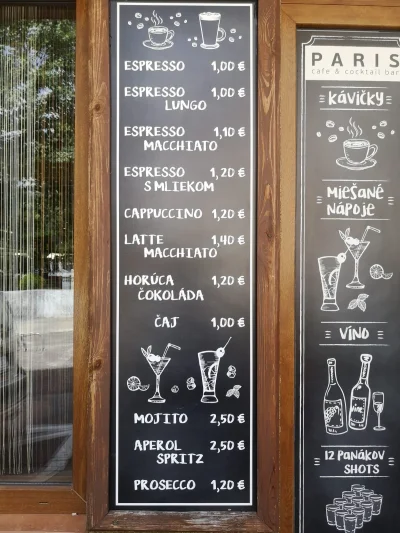 ESPRESSO 1,00 €
ESPRESSO 1,00 €
LUNGO
ESPRESSO 1,10 €
MACCHIATO
ESPRESSO 1,20 €
S MLIEKOM
CAPPUCCINO 1,20 €
LATTE 1,40 €
MACCHIATO
HORÚCA 1,20 €
ČOKOLÁDA
ČAJ 1,00 €
MOJITO 2,50 €
APEROL 2,50 €
SPRITZ
PROSECCO 1,20 €
PARIS
cafe & cocktail bar
KÁVIČKY
MIEŠANÉ
NÁPOJE
VÍNO
12 PANÁKOV
SHOTS